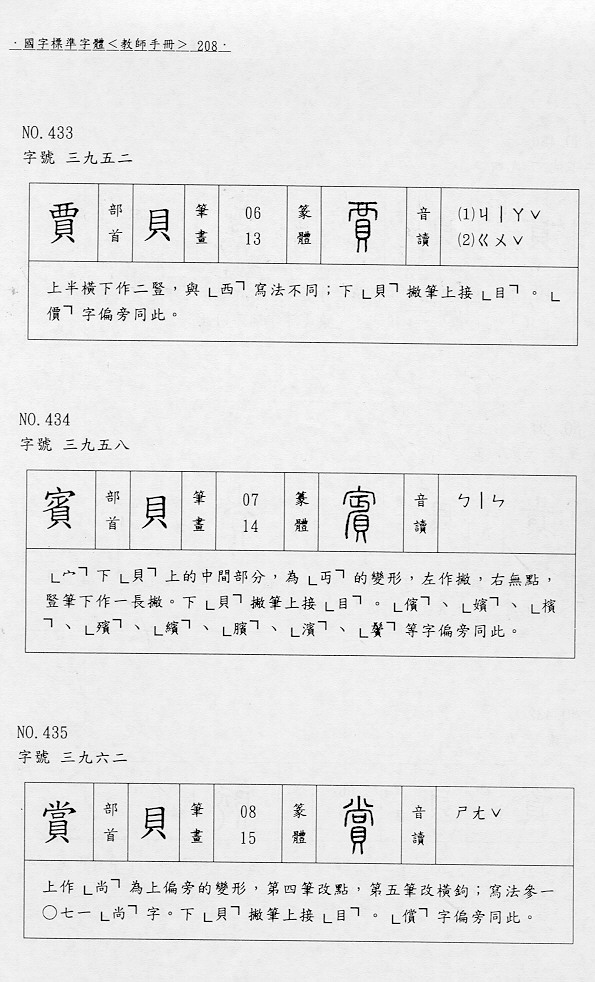 ·國字標準字體<教師手冊> 208·
NO.433
字號 三九五二
賈 部首 貝 筆畫 06 13 篆體 賈 音讀 ⑴ㄐㄧㄚˇ ⑵ㄍㄨˇ
上半橫下作二豎，與﹂西﹁寫法不同；下﹂貝﹁撇筆上接﹂目﹁。﹂
價﹁字偏旁同此。
NO.434
字號 三九五八
賓 部首 貝 筆畫 07 14 篆體 賓 音讀 ㄅㄧㄣ
﹂宀﹁下﹂貝﹁上的中間部分，為﹂丏﹁的變形，左作撇，右無點，
豎筆下作一長撇。下﹂貝﹁撇筆上接﹂目﹁。﹂儐﹁、﹂嬪﹁、﹂檳
﹁、﹂殯﹁、﹂繽﹁、﹂臏﹁、﹂濱﹁、﹂鬢﹁等字偏旁同此。
NO.435
字號 三九六二
賞 部首 貝 筆畫 08 15 篆體 賞 音讀 ㄕㄤˇ
上作﹂尚﹁為上偏旁的變形，第四筆改點，第五筆改橫鉤；寫法參一
○七一﹂尚﹁字。下﹂貝﹁撇筆上接﹂目﹁。﹂償﹁字偏旁同此。